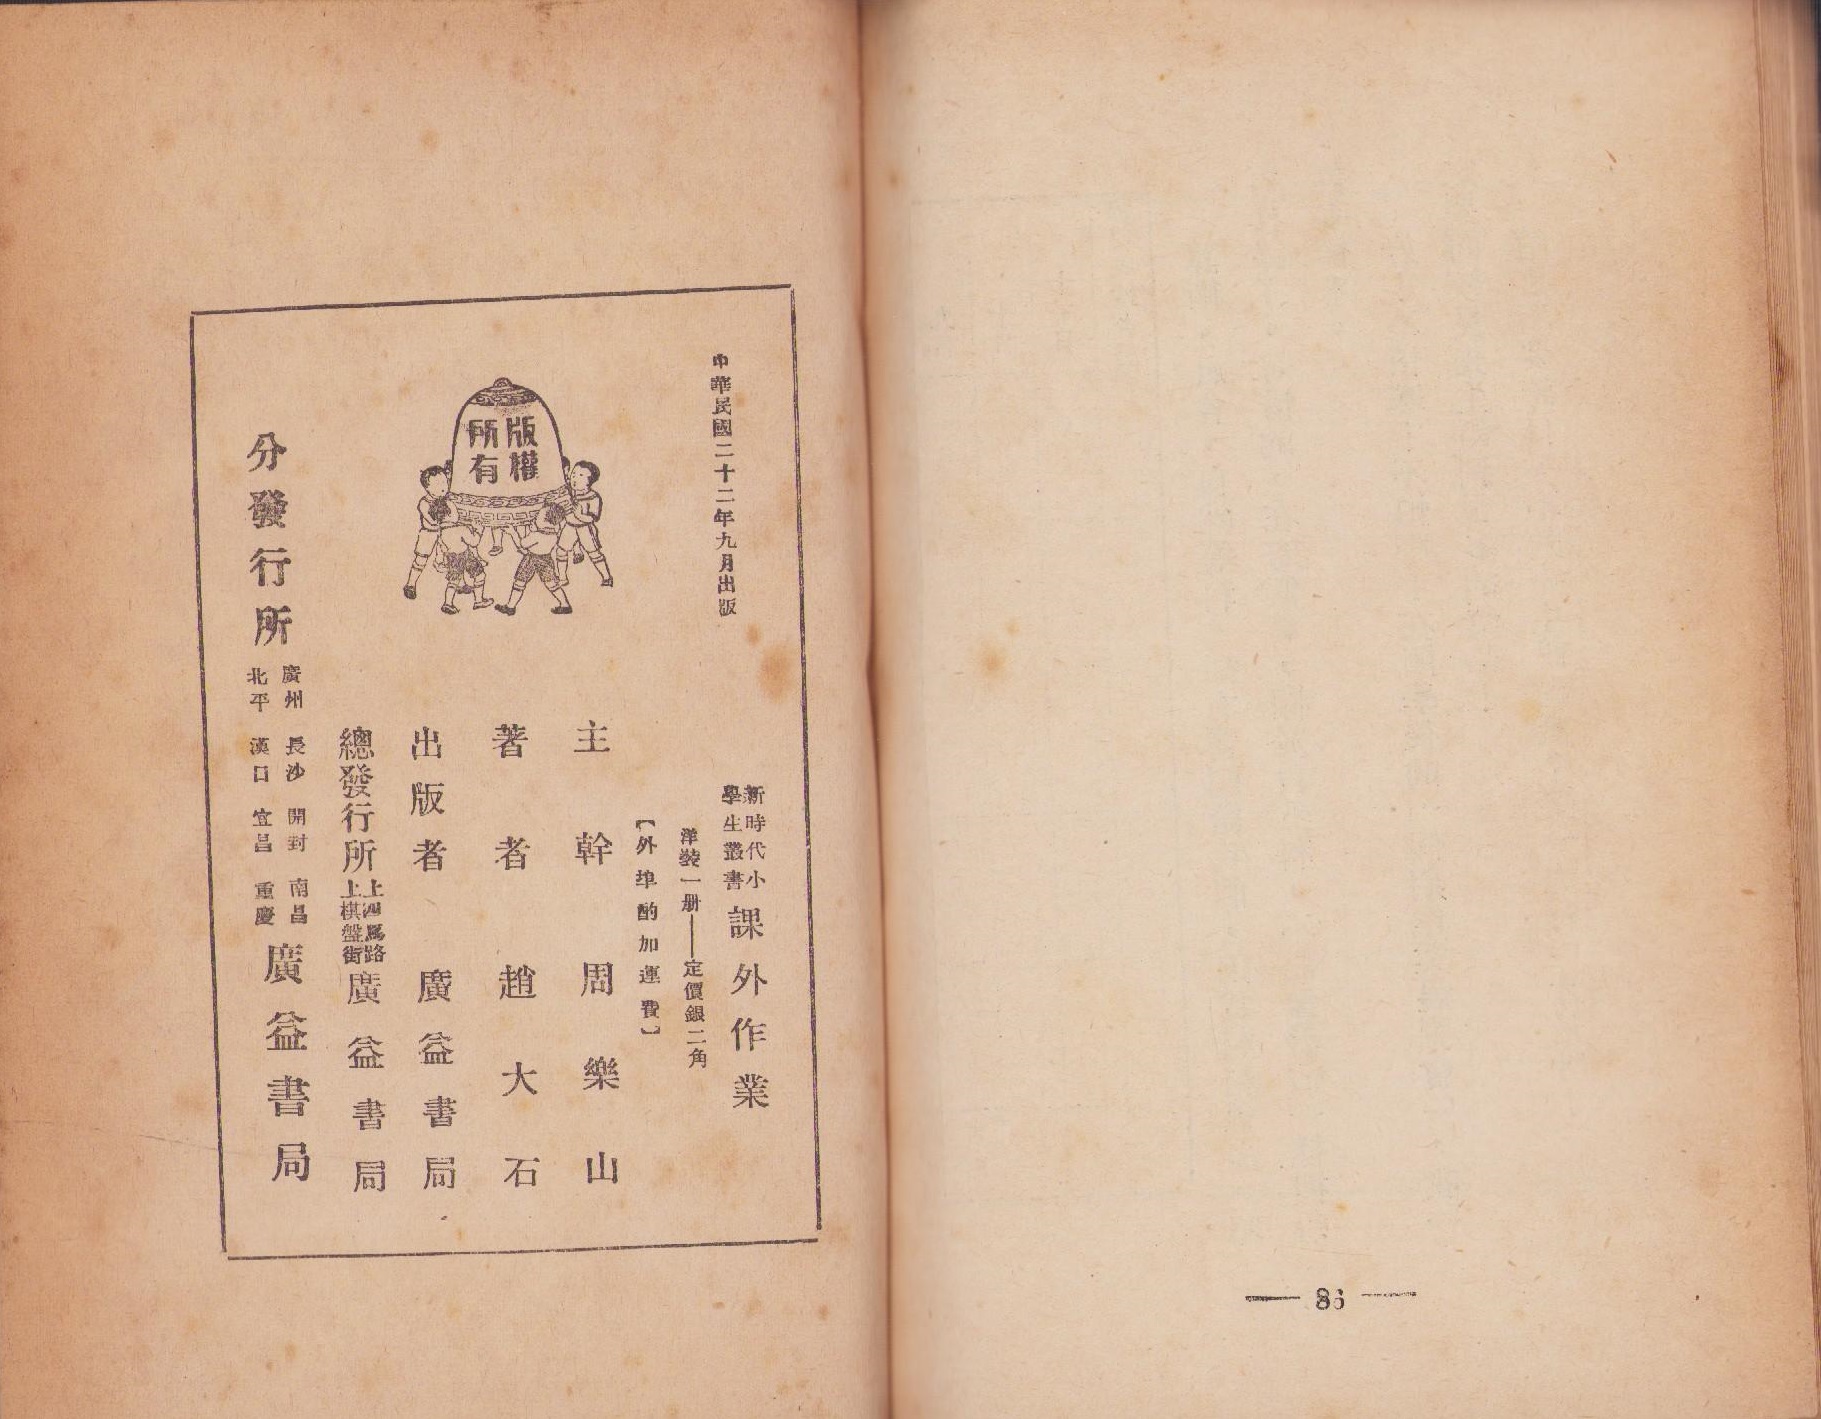 中華民國二十二年九月出版
新時代小
學生叢書
課外作業
洋裝一册——定價銀二角
【外埠酌加運費】
版權
所有
主幹 周樂山
著者 趙大石
出版者 廣益書局
總發行所
上四馬路
上棋盤街
廣益書局
分發行所
廣州 長沙 開封 南昌
北平 漢口 宜昌 重慶
廣益書局
— 86 —